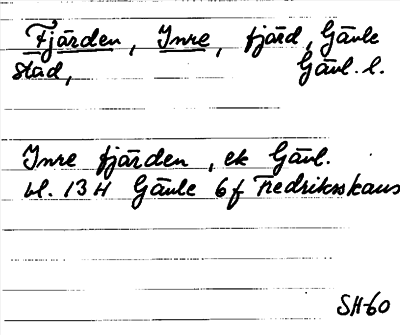 Fjärden, Inre, fjärd, Gävle
stad, Gävl. l.
Inre fjärden, ek Gävl.
bl. 13 H Gävle 6 f Fredriksskans
SH-60